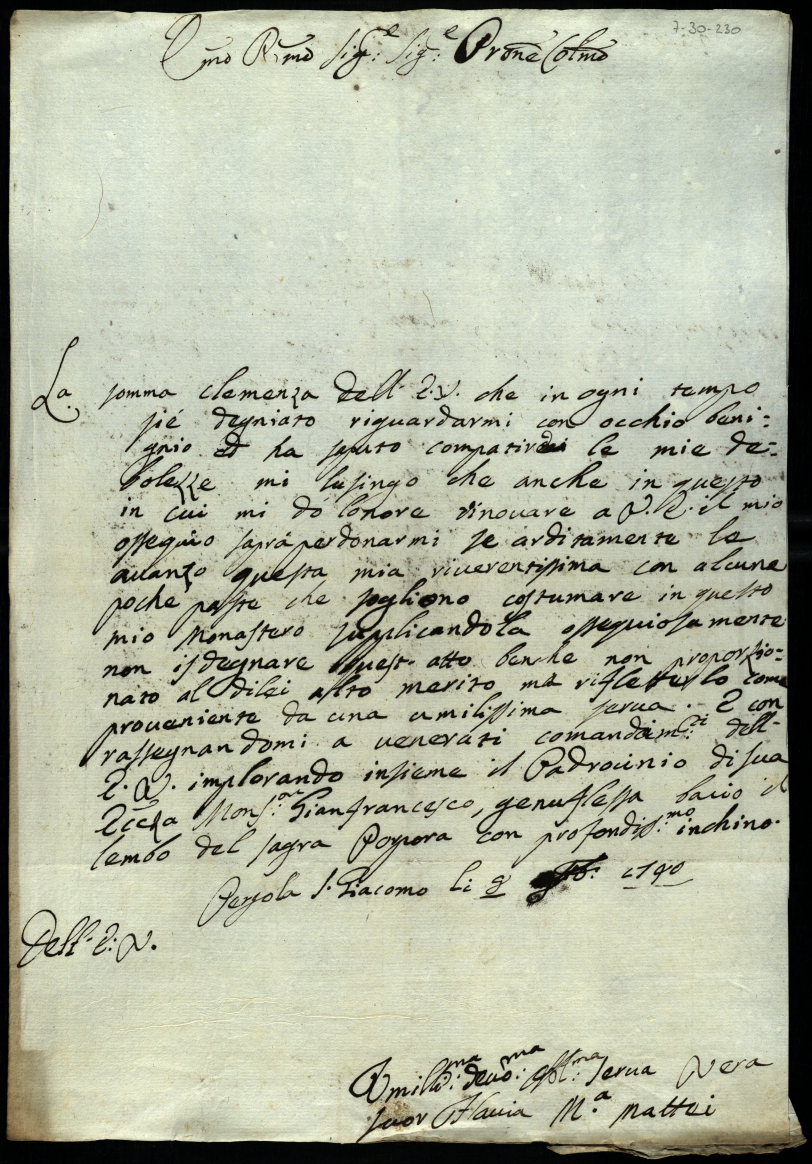 7-30-230
Emo Rmo Sig:e Sig:e Prone Colmo
La somma clemenza dell' E.V. che in ogni tempo
sié degniato riguardarmi con occhio beni=
gnio ed ha saputo compatire le mie de=
bolezze mi lusingo che anche in questo
in cui mi dó l'onore rinovare a V.E. il mio
ossequio saprá perdonarmi se arditamente le
avanzo questa mia riverentissima con alcune
poche paste che sogliono costumare in questo
mio Monastero suplicandola ossequiosamente
non isdegnare quest' atto benche non proporzio=
nato al dilei alto merito ma rifletterlo come
proveniente da una umilissima serva. E con
rassegnandomi a venerati comandam:ti dell'
E.V. implorando insieme il Padrocinio di sua
Eccza Mons:re Gianfrancesco, genuflessa bacio il
lembo del sagra Porpora con profondis:mo inchino.
Pergola S. Giacomo li 9 1740
Dell' E: V.
Umilis:ma devo:ma obbl:ma serva vera
Suor Flavia M.a Mattei